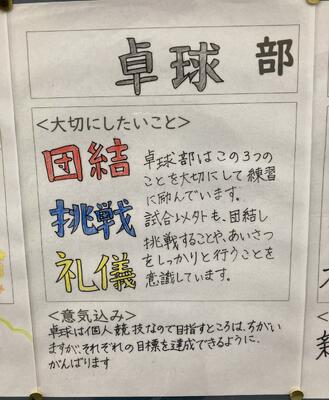 卓球 部
<大切にしたいこと>
団結
挑戦
礼儀
卓球部はこの3つの
ことを大切にして練習
に励んでいます。
試合以外でも、団結し
挑戦することや、あいさつ
をしっかりと行うことを
意識しています。
<意気込み>
卓球は個人競技なので目指すところは、ちがい
ますが、それぞれの目標を達成できるように、
がんばります